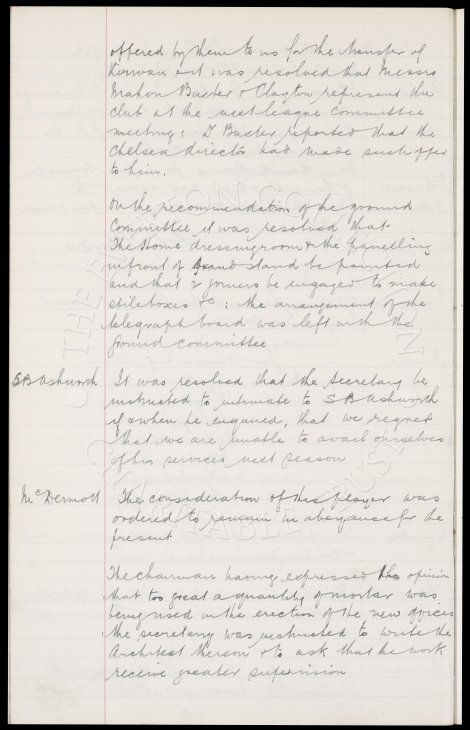 offered by them to us for the transfer of
Kirwan & it was resolved that Messrs
Mahon Baxter & Clayton represent the
club at the next league committee
meeting: Dr Baxter reported that the
Chelsea director had made such offer
to him.
On the recommendation of the ground
Committee it was resolved that
The Home dressingroom & the panelling
in front of Grand stand be painted
and that 2 joiners be engaged to make
stileboxes &c: the arrangement of the
telegraph board was left with the
ground committee
SB Ashworth
It was resolved that the Secretary be
instructed to intimate to S B Ashworth
if & when he enquired, that we regret
that we are unable to avail ourselves
of his services next season
McDermott
The consideration of this player was
ordered to remain in abeyance for the
present
The chairman having expressed the opinion
that too great a quantity of mortar was
being used in the erection of the new offices
the secretary was instructed to write the
Architect thereon & to ask that the work
receive greater supervision